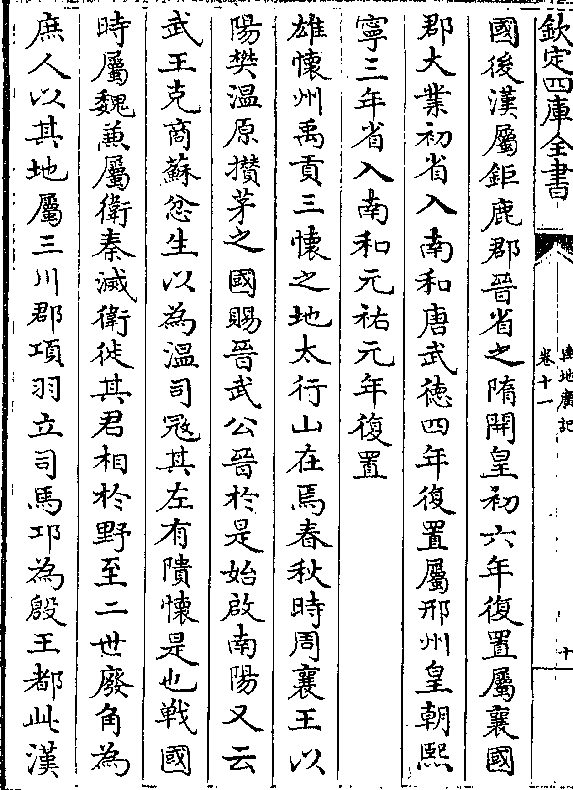 欽定四庫全書
輿地廣記
卷十一
十
國後漢屬鉅鹿郡晉省之隋開皇初六年復置屬襄國
郡大業初省入南和唐武徳四年復置屬邢州皇朝熙
寧三年省入南和元祐元年復置
雄懷州禹貢三懷之地太行山在焉春秋時周襄王以
陽樊溫原攅茅之國賜晉武公晉於是始啟南陽又云
武王克商蘇忿生以為溫司㓂其左有隤懷是也戰國
時屬魏兼屬衛秦滅衛徙其君相於野至二世廢角為
庶人以其地屬三川郡項羽立司馬卭為殷王都此漢